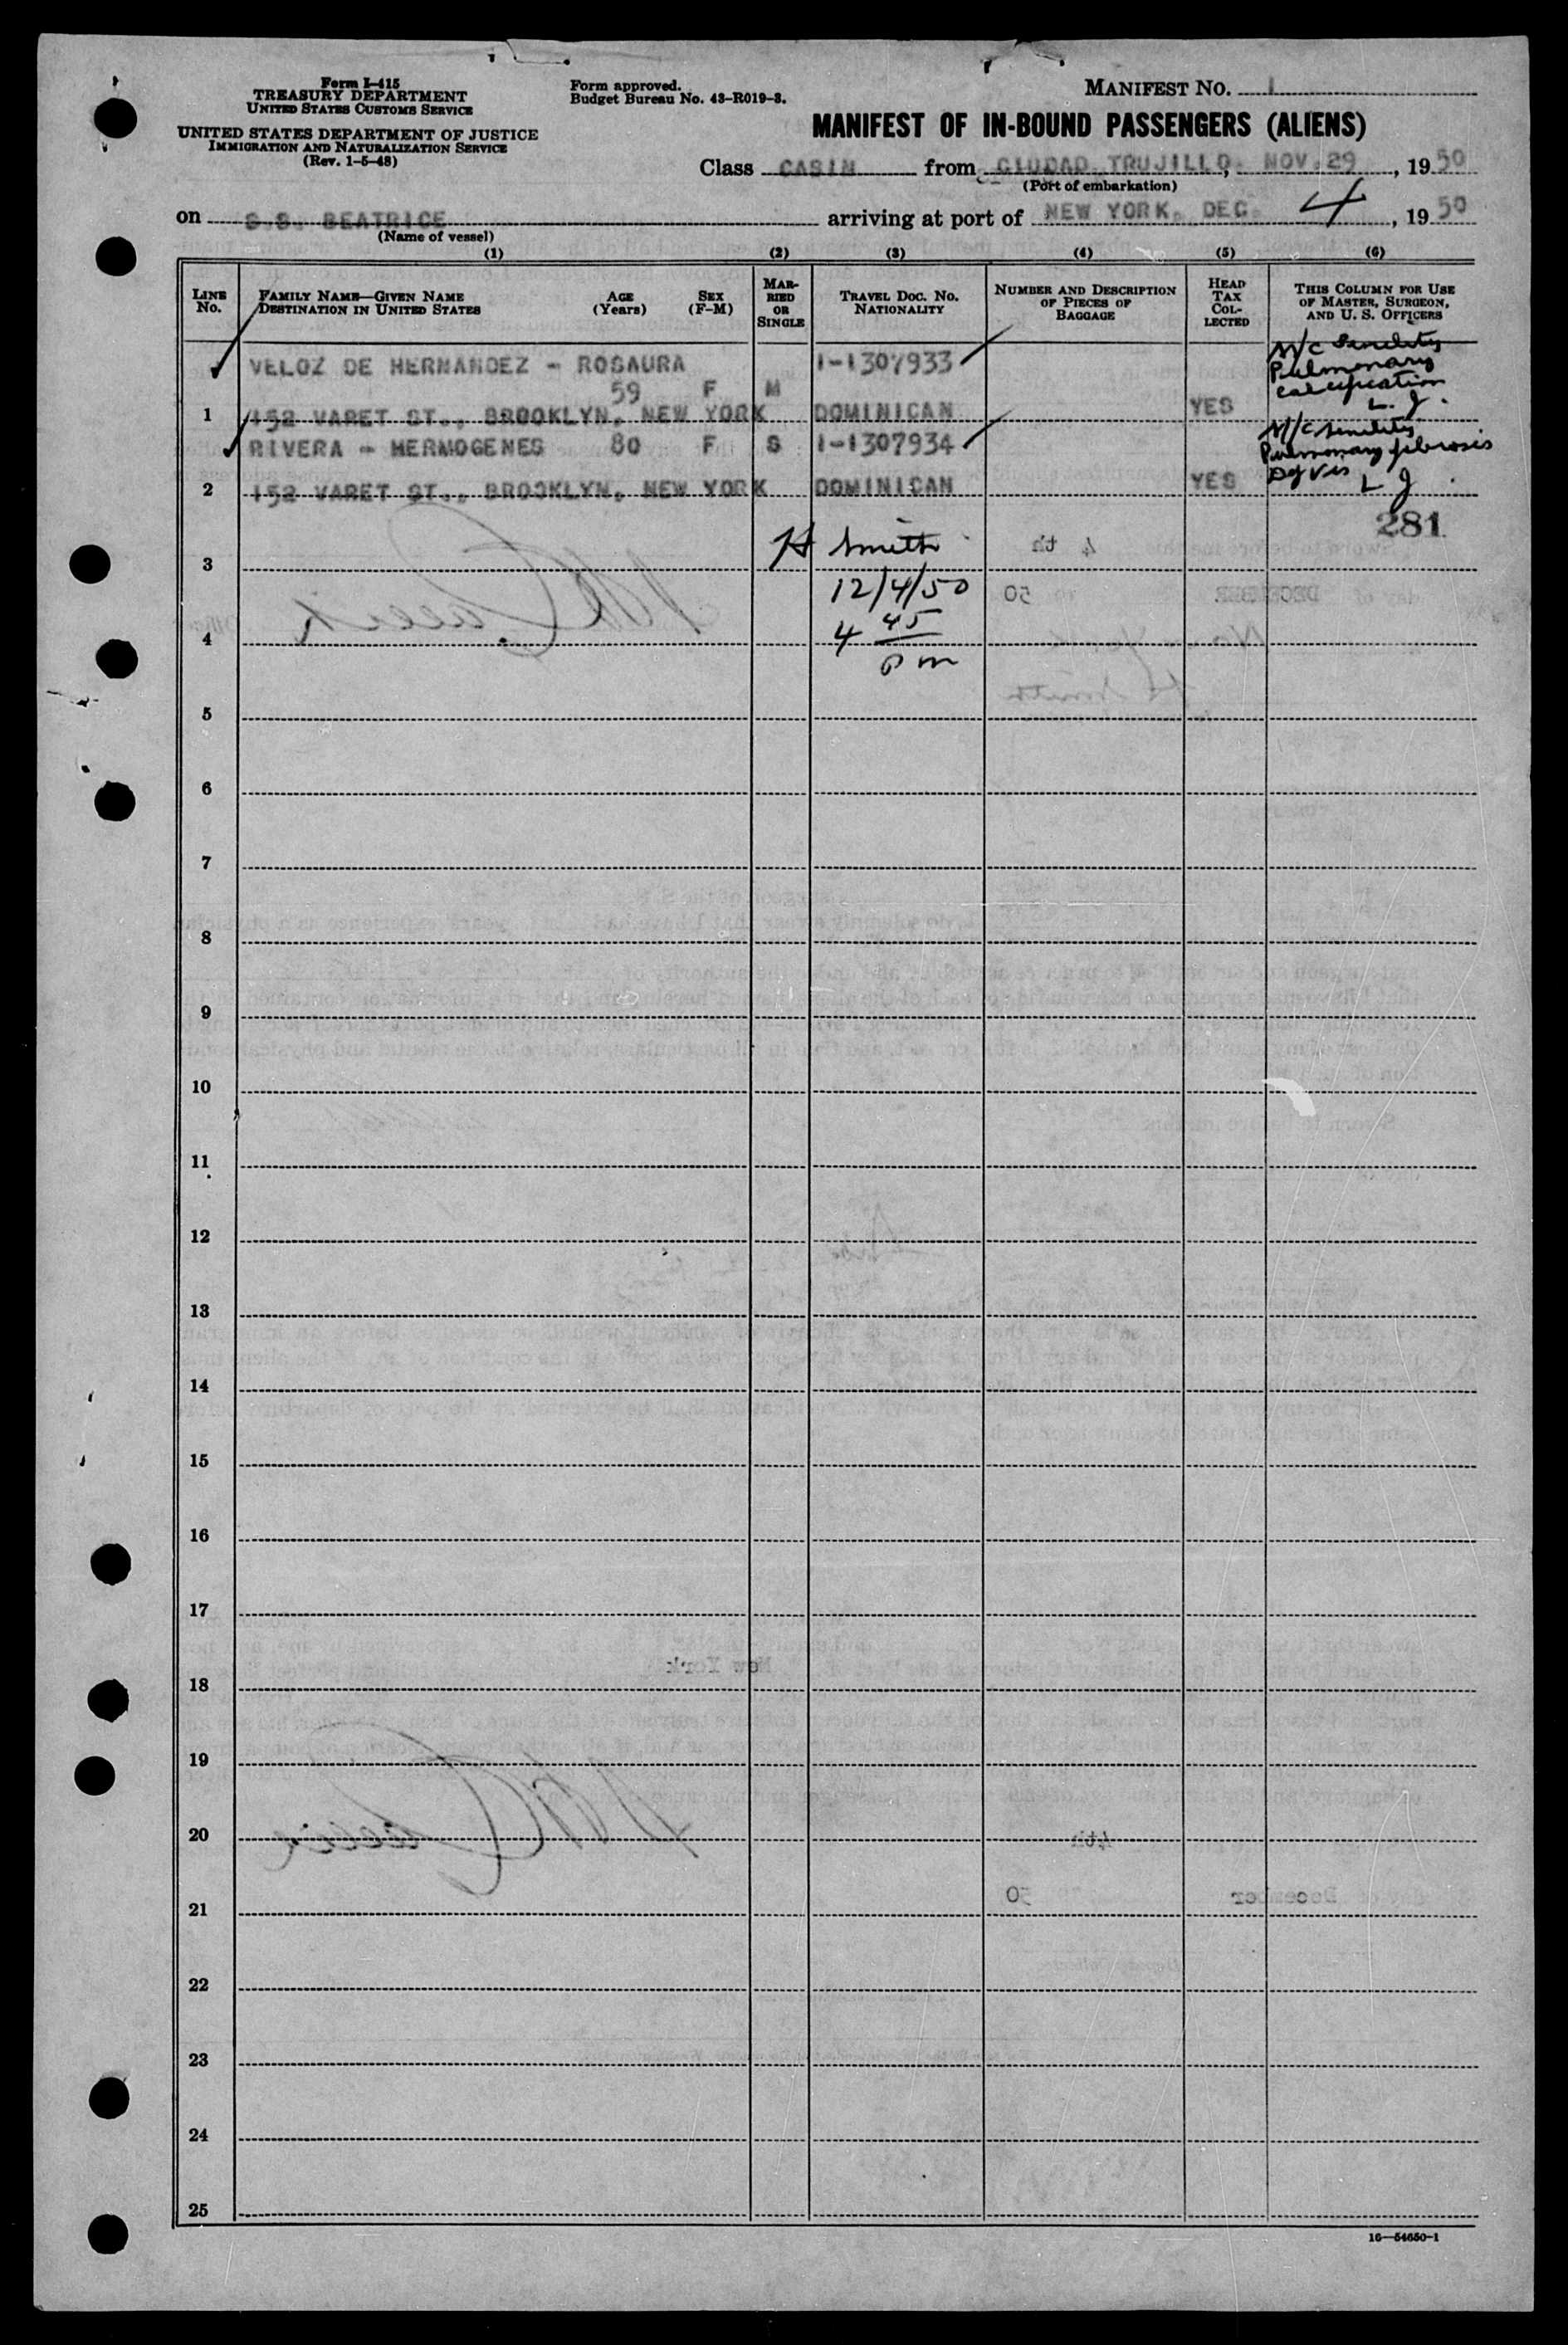 Form I-415
TREASURY DEPARTMENT
UNITED STATES CUSTOMS SERVICE
UNITED STATES DEPARTMENT OF JUSTICE
IMMIGRATION AND NATURALIZATION SERVICE
(Rev. 1-5-48)
Form approved.
Budget Bureau No. 43-R019-3.
MANIFEST NO. 1
MANIFEST OF IN-BOUND PASSENGERS (ALIENS)
Class CABIN from CIUDAD TRUJILLO, NOV.29, 1950
(Port of embarkation)
on S.S. BEATRICE arriving at port of NEW YORK, DEC. 4, 1950
(Name of vessel)
(1) (2) (3) (4) (5) (6)
LINE No. FAMILY NAME—GIVEN NAME DESTINATION IN UNITED STATES AGE (Years) SEX (F-M) MARRIED OR SINGLE TRAVEL DOC. NO. NATIONALITY NUMBER AND DESCRIPTION OF PIECES OF BAGGAGE HEAD TAX COLLECTED THIS COLUMN FOR USE OF MASTER, SURGEON, AND U. S. OFFICERS
VELOZ DE HERNANDEZ - ROSAURA I-1307933 M/C Senility
Pulmonary
59 F M calcification
1 152 VARET ST., BROOKLYN, NEW YORK DOMINICAN YES L. J.
RIVERA - HERMOGENES 80 F S I-1307934 M/C Senility
Pulmonary fibrosis
2 152 VARET ST., BROOKLYN, NEW YORK DOMINICAN YES Def Vis L J
281
3 H Smith
12/4/50
4 4 45
pm
5
6
7
8
9
10
11
12
13
14
15
16
17
18
19
20
21
22
23
24
25
16—54650-1